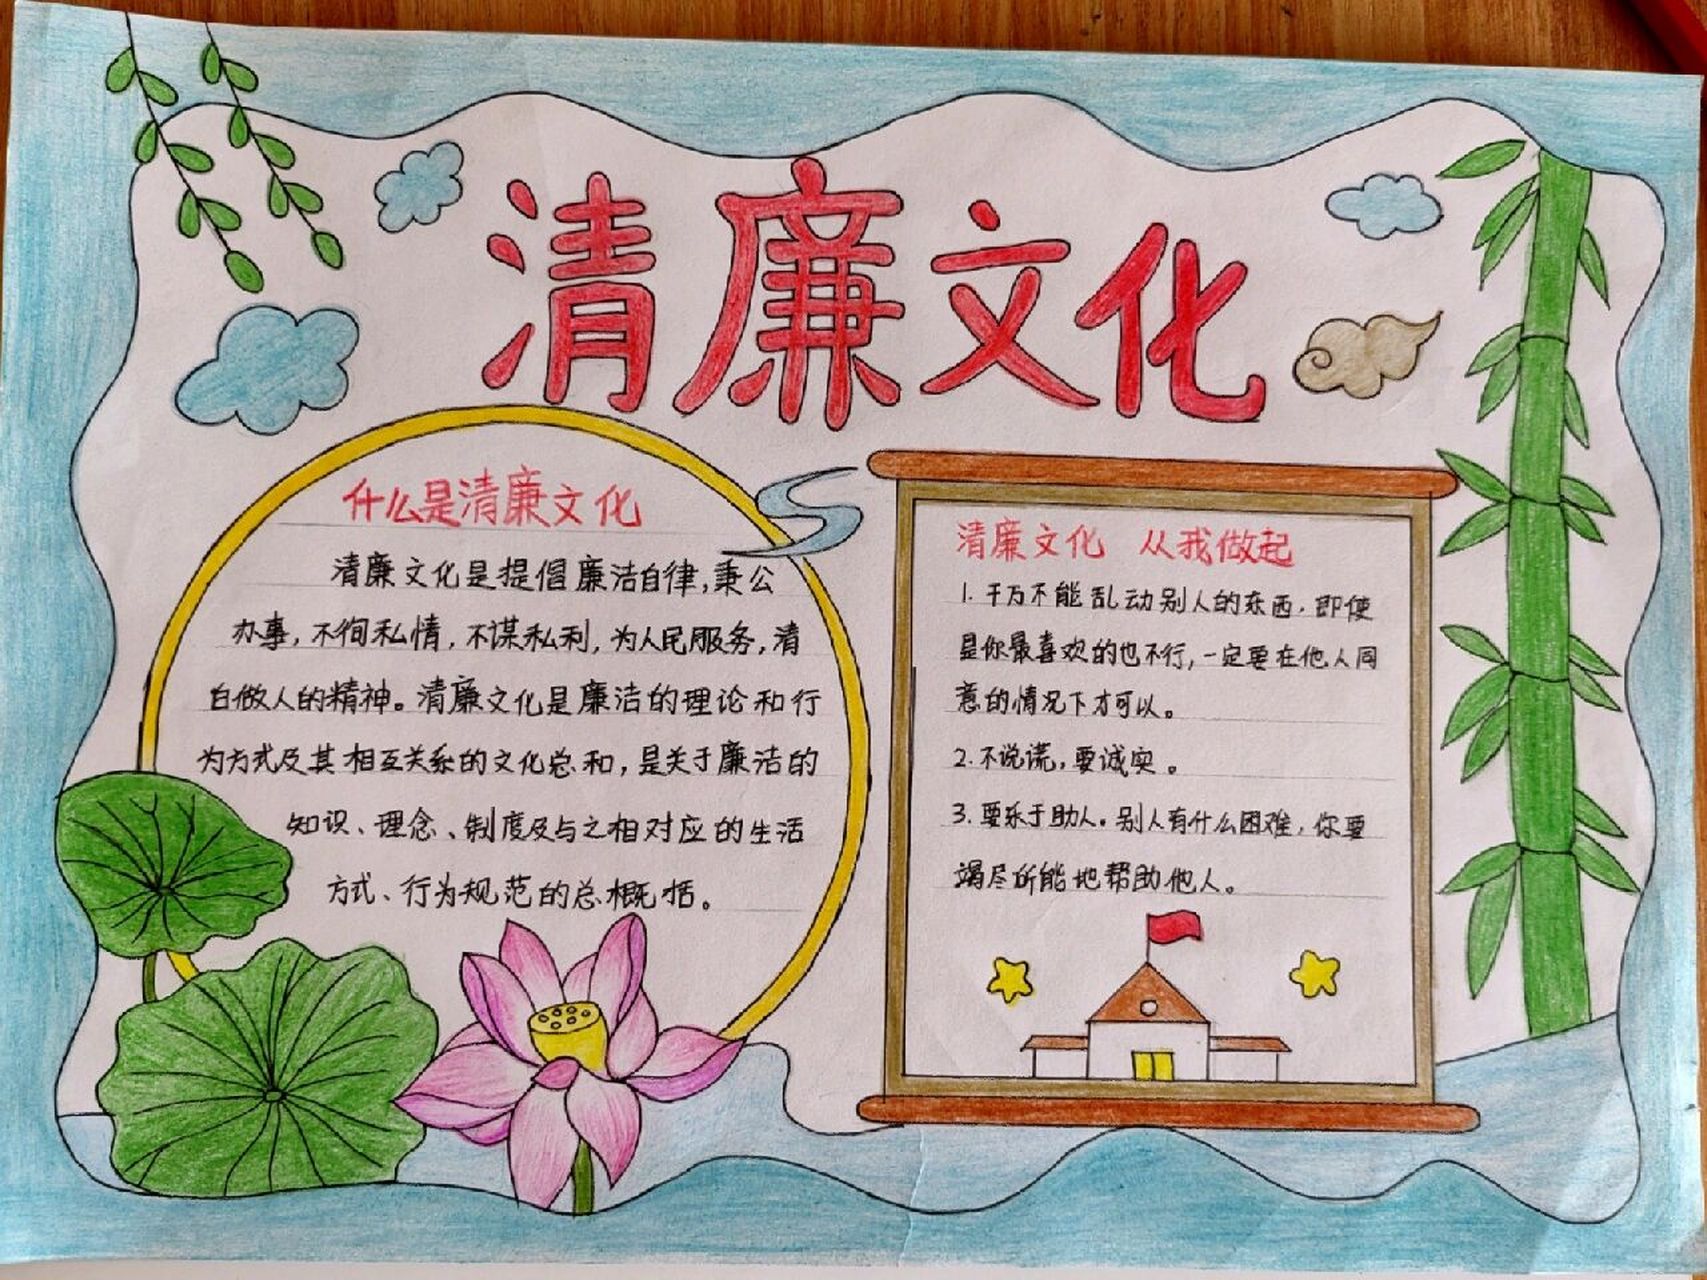 清廉文化
什么是清廉文化
清廉文化是提倡廉洁自律,秉公
办事,不徇私情,不谋私利,为人民服务,清
白做人的精神。清廉文化是廉洁的理论和行
为方式及其相互关系的文化总和,是关于廉洁的
知识、理念、制度及与之相对应的生活
方式、行为规范的总概括。
清廉文化 从我做起
1.千万不能乱动别人的东西,即使
是你最喜欢的也不行,一定要在他人同
意的情况下才可以。
2.不说谎,要诚实。
3.要乐于助人。别人有什么困难,你要
竭尽所能地帮助他人。